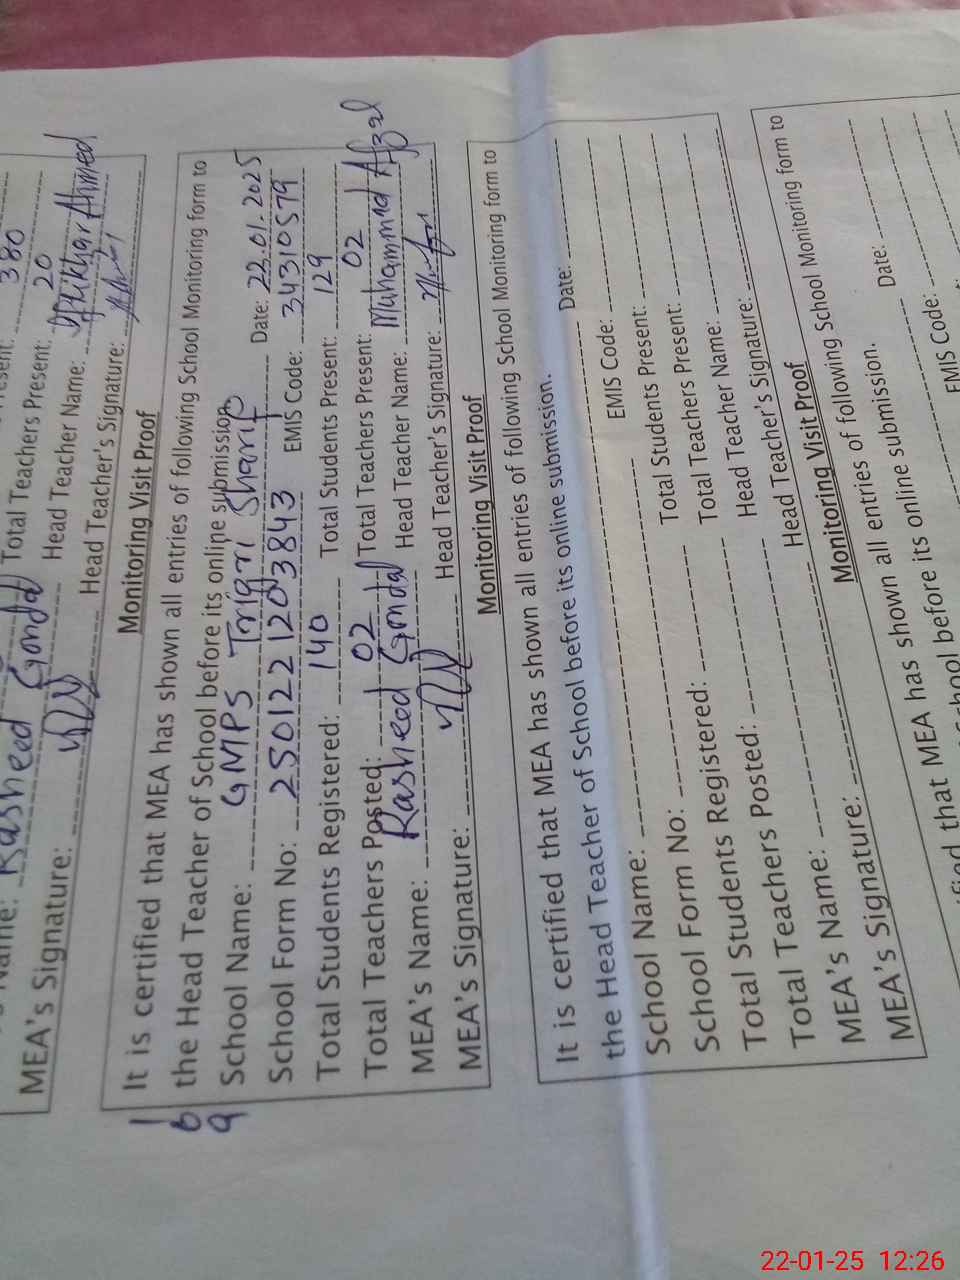 380
Total Teachers Present: 20
Name: Rasheed Gondal Head Teacher Name: Iftikhar Ahmed
MEA's Signature: Head Teacher's Signature:
Monitoring Visit Proof
It is certified that MEA has shown all entries of following School Monitoring form to
the Head Teacher of School before its online submission.
School Name: GMPS Tangri Sharif Date: 22.01.2025
School Form No: 250122 1203843 EMIS Code: 34310579
Total Students Registered: 140 Total Students Present: 129
Total Teachers Posted: 02 Total Teachers Present: 02
MEA's Name: Rasheed Gondal Head Teacher Name: Muhammad Afzal
MEA's Signature: Head Teacher's Signature:
169
Monitoring Visit Proof
It is certified that MEA has shown all entries of following School Monitoring form to
the Head Teacher of School before its online submission.
Date:
School Name: EMIS Code:
School Form No: Total Students Present:
Total Students Registered: Total Teachers Present:
Total Teachers Posted: Head Teacher Name:
MEA's Name: Head Teacher's Signature:
MEA's Signature:
Monitoring Visit Proof
that MEA has shown all entries of following School Monitoring form to
School before its online submission. Date:
EMIS Code:
22-01-25 12:26